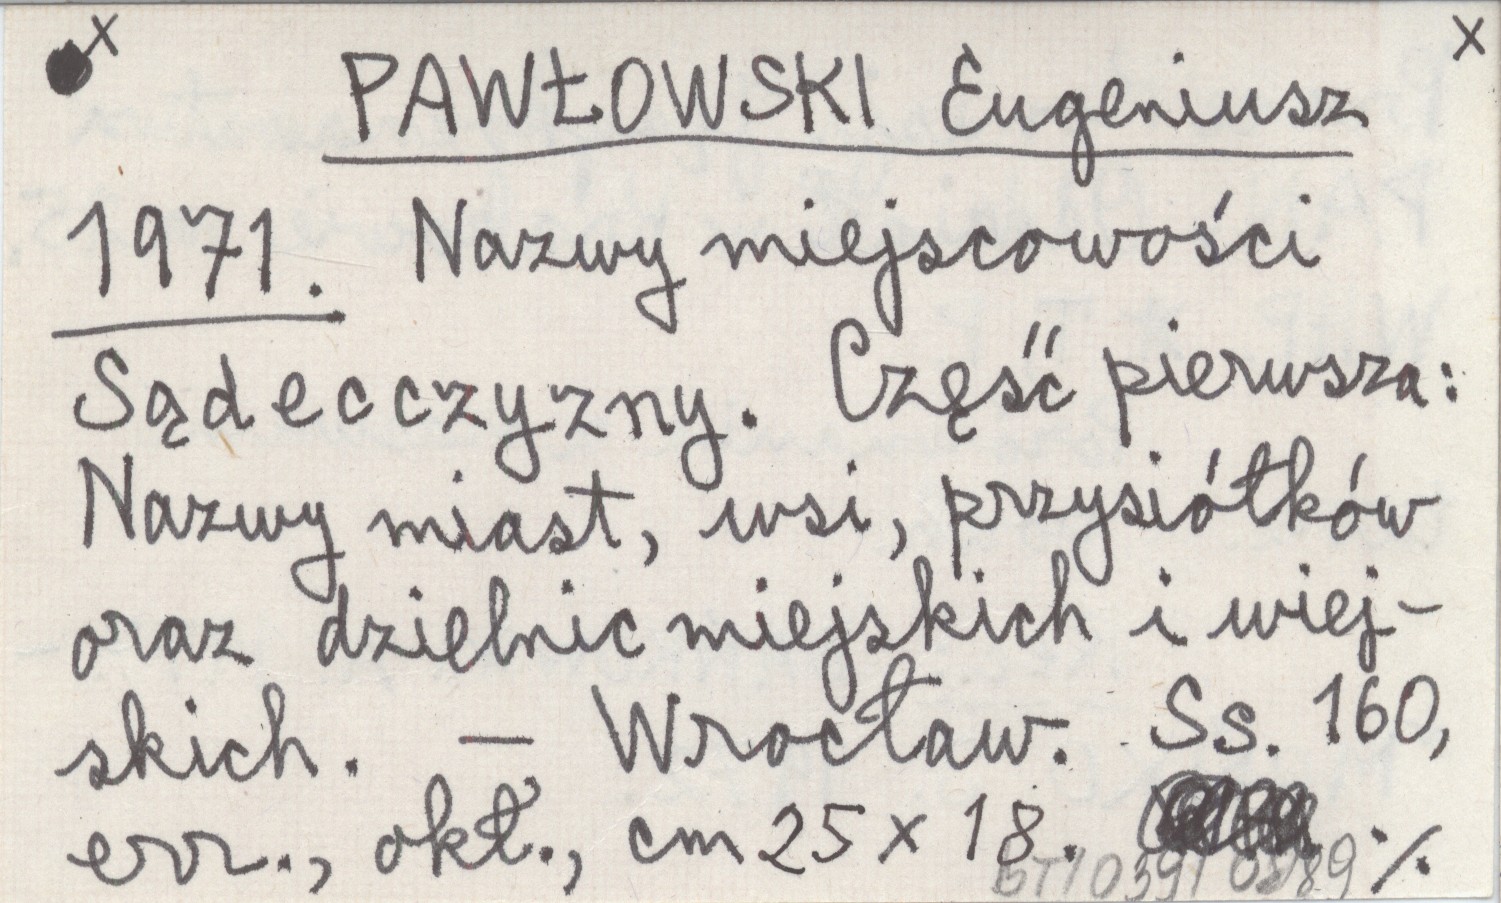 x x
PAWŁOWSKI Eugeniusz
1971. Nazwy miejscowości
Sądecczyzny. Część pierwsza:
Nazwy miast, wsi, przysiółków
oraz dzielnic miejskich i wiej-
skich. — Wrocław. Ss. 160,
err., okł., cm 25 x 18. ./.